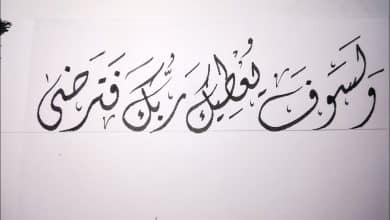 وَلَسَوفَ يُعْطِيكَ رَبُّكَ فَتَرضىٰ